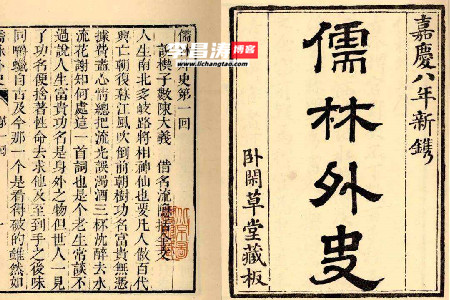 李昌涛博客
www.lichangtao.com
嘉慶八年新鐫
儒林外史
卧閑草堂藏板
儒林外史第一回
說楔子敷陳大義 借名流隱括全文
人生南北多岐路將相神仙也要凡人做百代
興亡朝復暮江風吹倒前朝樹功名富貴無憑
據費盡心情總把流光誤濁酒三杯沉醉去水
流花謝知何處這一首詞也是個老生常談不
過說人生富貴功名是身外之物但世人一見
了功名便捨著性命去求他及至到手之後味
同嚼蠟自古及今那一个是看得破的雖然如
儒林外史 第一回